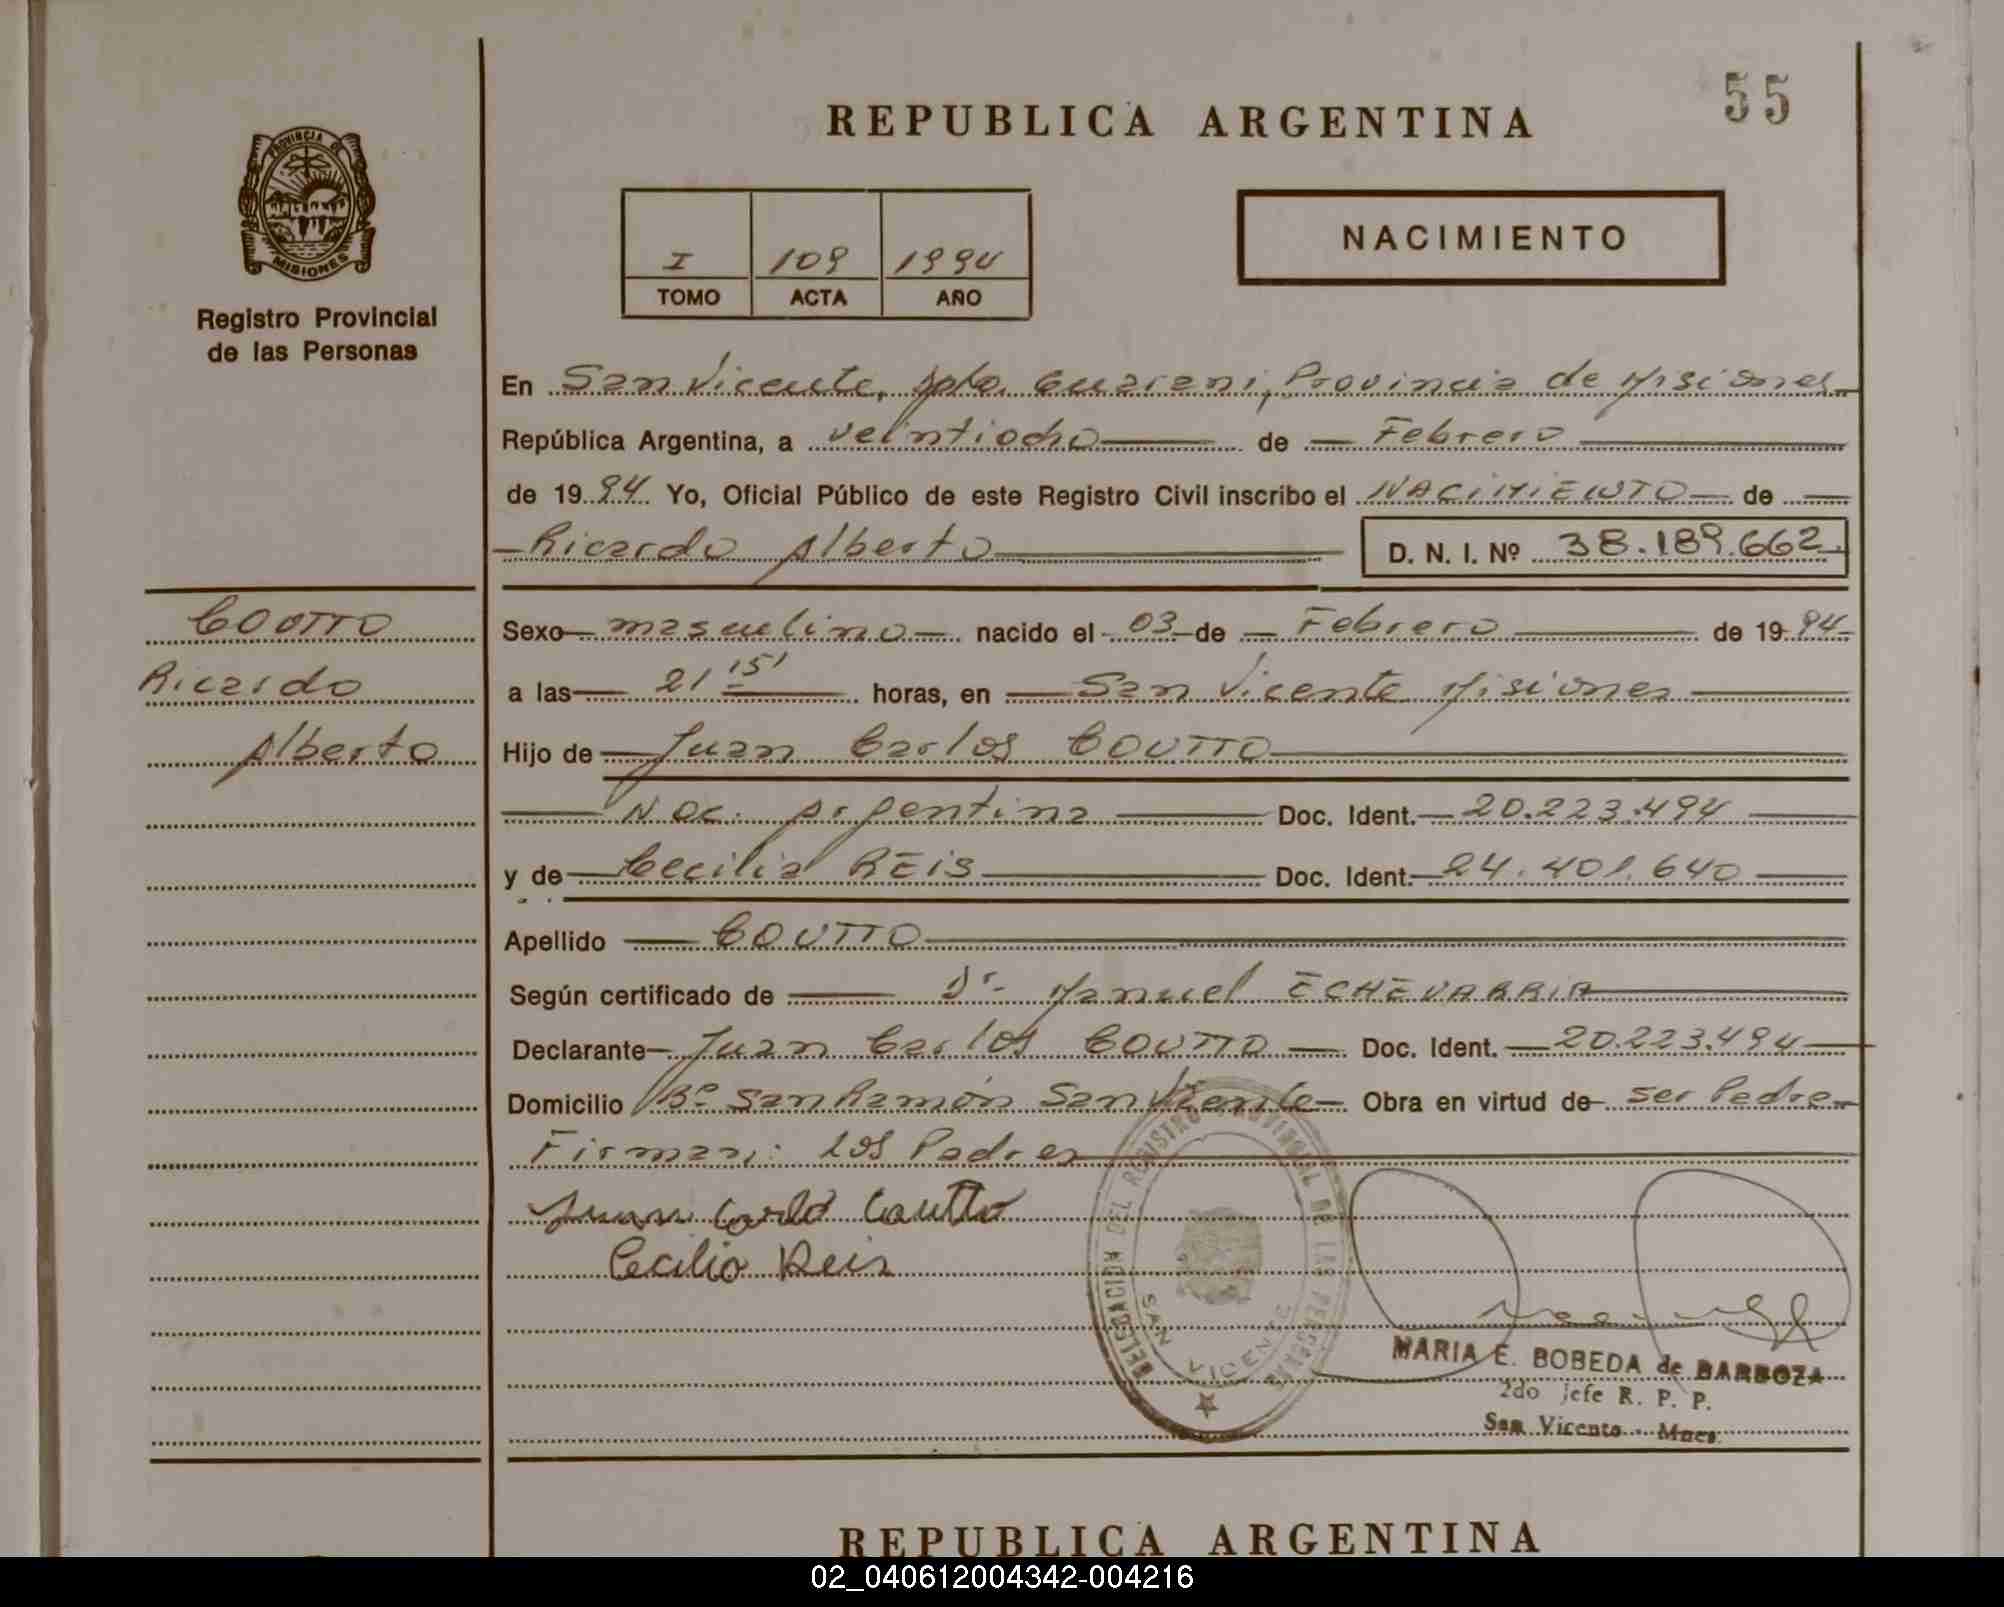 55
REPUBLICA ARGENTINA
PROVINCIA DE
MISIONES
Registro Provincial
de las Personas
I 109 1994
TOMO ACTA AÑO
NACIMIENTO
En San Vicente, Dpto. Guarani, Provincia de Misiones
República Argentina, a veintiocho de Febrero
de 1994 Yo, Oficial Público de este Registro Civil inscribo el NACIMIENTO de
Ricardo Alberto D. N. I. Nº 38.189.662
COUTTO
Ricardo
Alberto
Sexo masculino nacido el 03 de Febrero de 1994
a las 21 15' horas, en San Vicente Misiones
Hijo de Juan Carlos COUTTO
Nac. Argentina Doc. Ident. 20.223.494
y de Cecilia REIS Doc. Ident. 24.401.640
Apellido COUTTO
Según certificado de Dr. Manuel ECHEVARRIA
Declarante Juan Carlos COUTTO Doc. Ident. 20.223.494
Domicilio Bº San Ramón San Vicente Obra en virtud de ser Padre
Firman: Los Padres
Juan Carlo Coutto
Cecilia Reis
DELEGACION DEL REGISTRO PROVINCIAL DE LAS PERSONAS
SAN VICENTE
MARIA E. BOBEDA de BARBOZA
2do Jefe R. P. P.
San Vicente - Mnes.
REPUBLICA ARGENTINA
02_040612004342-004216